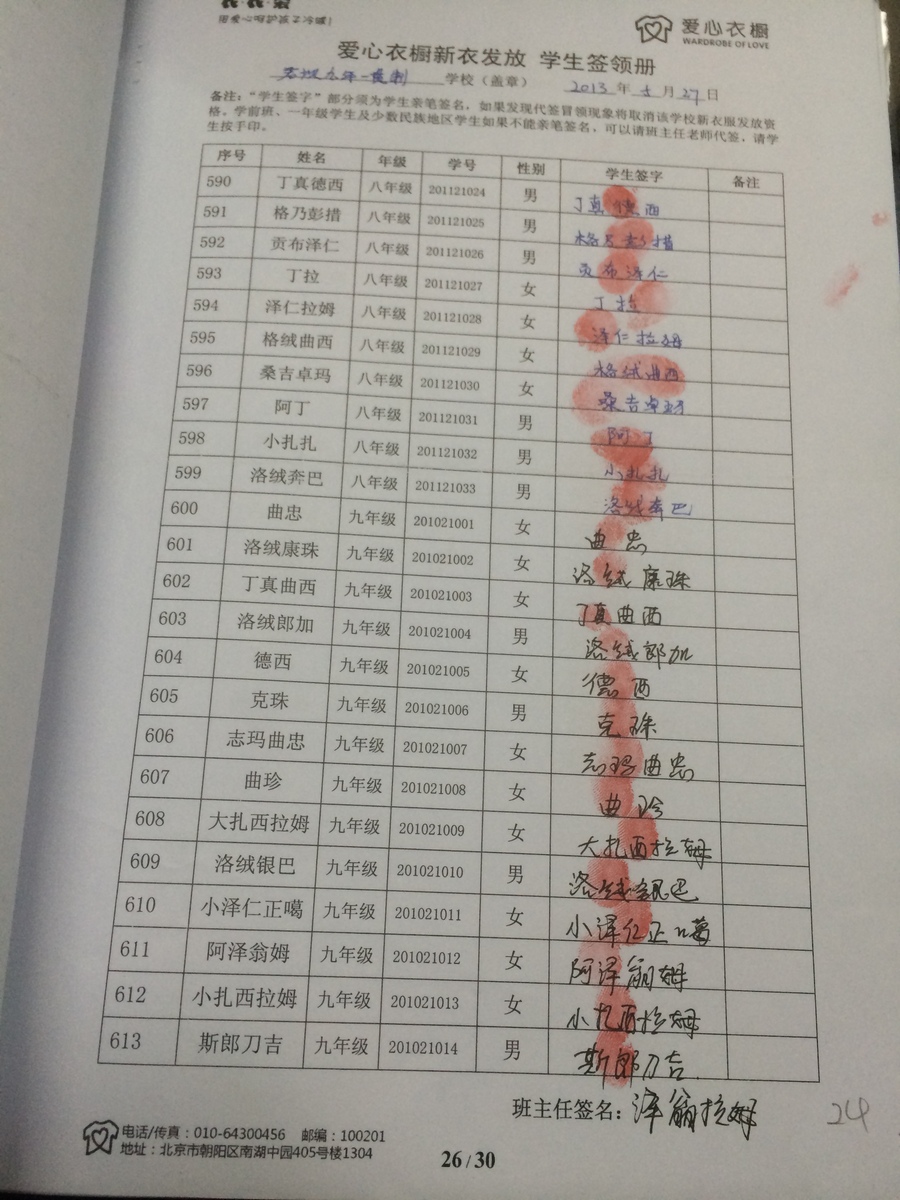 用爱心呵护孩子冷暖!
爱心衣橱
WARDROBE OF LOVE
爱心衣橱新衣发放 学生签领册
九年一贯制 学校（盖章） 2013 年 5 月 27 日
备注：“学生签字”部分须为学生亲笔签名，如果发现代签冒领现象将取消该学校新衣服发放资
格。学前班、一年级学生及少数民族地区学生如果不能亲笔签名，可以请班主任老师代签，请学
生按手印。
序号 姓名 年级 学号 性别 学生签字 备注
590 丁真德西 八年级 201121024 男 丁真德西
591 格乃彭措 八年级 201121025 男 格乃彭措
592 贡布泽仁 八年级 201121026 男 贡布泽仁
593 丁拉 八年级 201121027 女 丁拉
594 泽仁拉姆 八年级 201121028 女 泽仁拉姆
595 格绒曲西 八年级 201121029 女 格绒曲西
596 桑吉卓玛 八年级 201121030 女 桑吉卓玛
597 阿丁 八年级 201121031 男 阿丁
598 小扎扎 八年级 201121032 男 小扎扎
599 洛绒奔巴 八年级 201121033 男 洛绒奔巴
600 曲忠 九年级 201021001 女 曲忠
601 洛绒康珠 九年级 201021002 女 洛绒康珠
602 丁真曲西 九年级 201021003 女 丁真曲西
603 洛绒郎加 九年级 201021004 男 洛绒郎加
604 德西 九年级 201021005 女 德西
605 克珠 九年级 201021006 男 克珠
606 志玛曲忠 九年级 201021007 女 志玛曲忠
607 曲珍 九年级 201021008 女 曲珍
608 大扎西拉姆 九年级 201021009 女 大扎西拉姆
609 洛绒银巴 九年级 201021010 男 洛绒银巴
610 小泽仁正噶 九年级 201021011 女 小泽仁正噶
611 阿泽翁姆 九年级 201021012 女 阿泽翁姆
612 小扎西拉姆 九年级 201021013 女 小扎西拉姆
613 斯郎刀吉 九年级 201021014 男 斯郎刀吉
班主任签名：泽翁拉姆
24
电话/传真：010-64300456 邮编：100201
地址：北京市朝阳区南湖中园405号楼1304
26 / 30